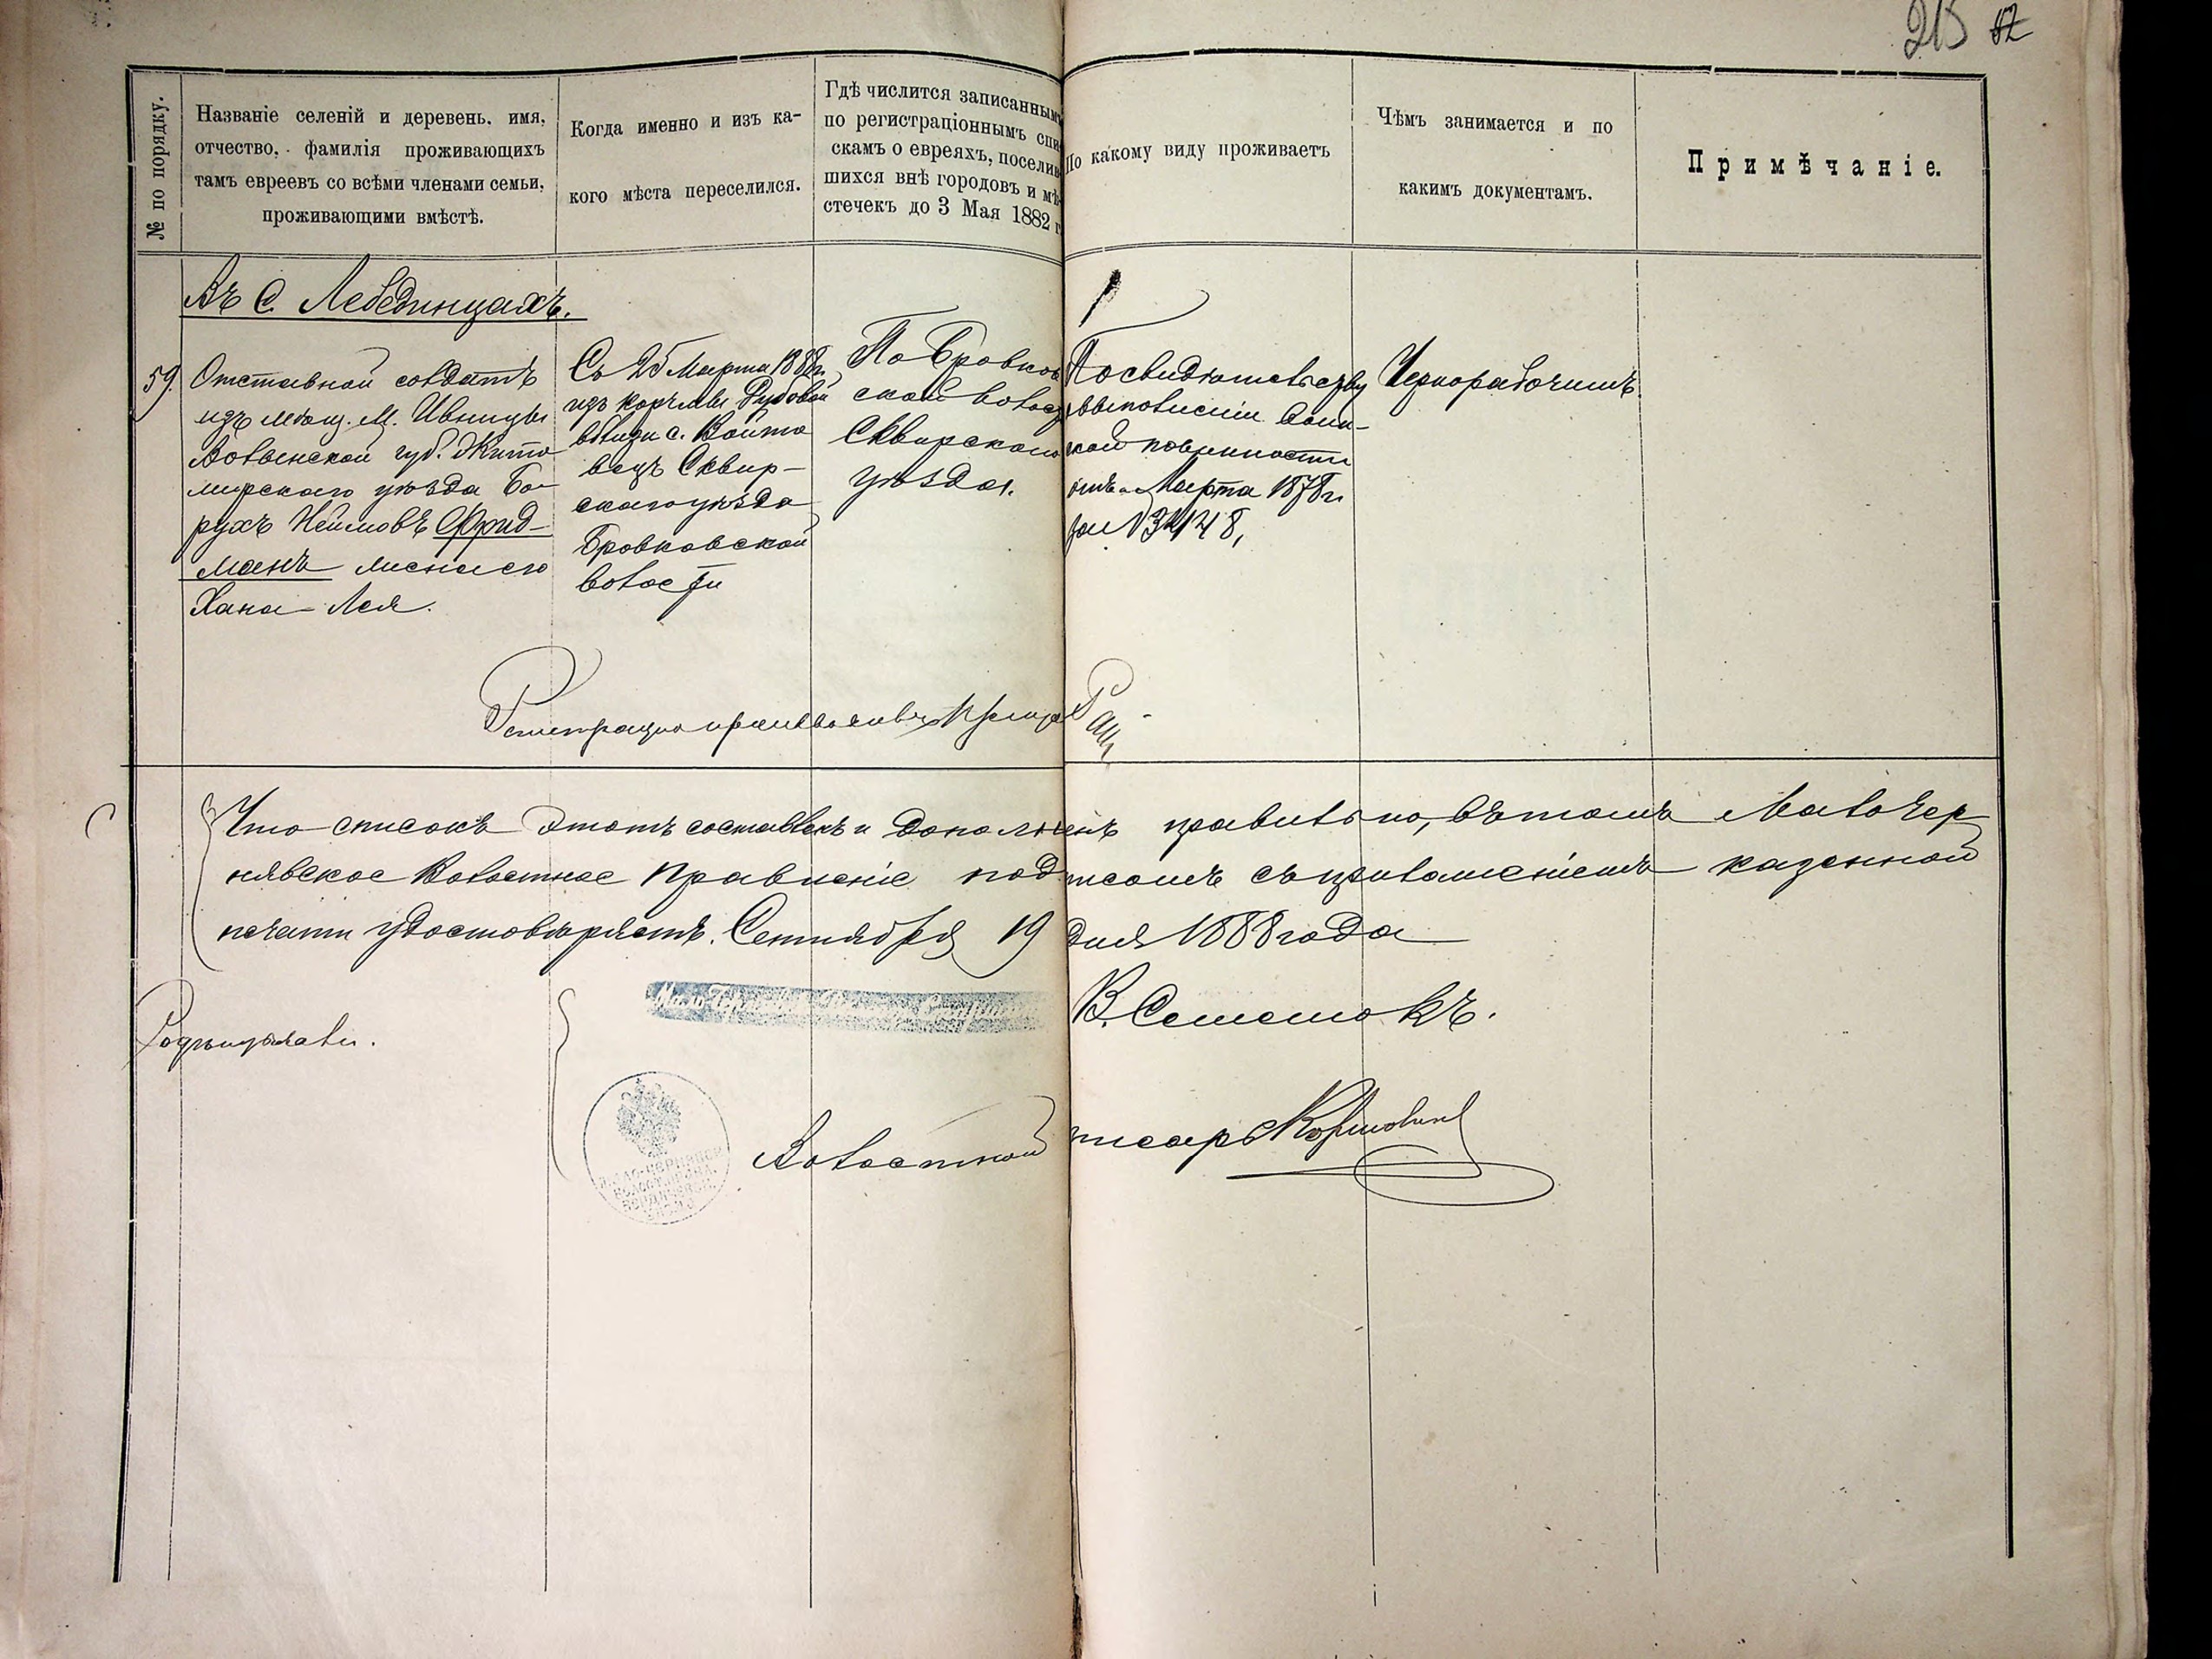 213 82
№ по порядку.
Названіе селеній и деревень, имя,
отчество, фамилія проживающихъ
тамъ евреевъ со всѣми членами семьи,
проживающими вмѣстѣ.
Когда именно и изъ ка-
кого мѣста переселился.
Гдѣ числится записаннымъ
по регистраціоннымъ спи-
скамъ о евреяхъ, поселив-
шихся внѣ городовъ и мѣ-
стечекъ до 3 Мая 1882 г.
По какому виду проживаетъ
Чѣмъ занимается и по
какимъ документамъ.
Примѣчаніе.
Въ с. Лебединцахъ.
59.
Отставной солдатъ
изъ мѣщ. м. Ивницы
Волынской губ. Жито
мирскаго уѣзда Бо-
рухъ Фрид-
манъ жена его
Хана-Лея.
Съ 25 Марта 1888 г.
изъ корчмы Дубовой
вблизи с. Войто
вецъ Сквир-
скаго уѣзда
Бровковской
волости
По Бровков
ской волос
Сквирскаго
уѣзда.
По свидѣтельству
о выполненіи воин-
ской повинности
Марта 1878 г.
за №
Чернорабочимъ
Что списокъ этотъ составленъ и дополненъ правильно, въ томъ Мало Чер
нявское Волостное Правленіе подписомъ съ приложеніемъ казенной
печати удостовѣряетъ. Сентября 19 дня 1888 года
В. Семенюкъ.
Волостной писарь